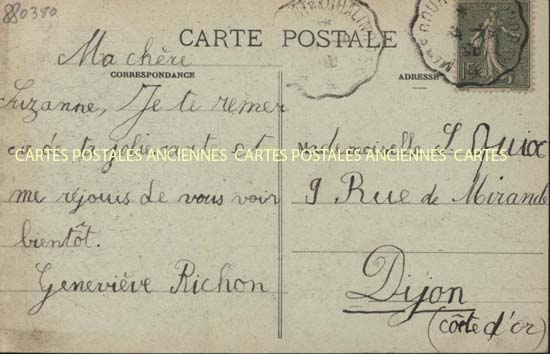 880380
CARTE POSTALE
CORRESPONDANCE
ADRESSE
Ma chère
Suzanne, Je te remer
cie de ta jolie carte et
me réjouis de vous voir
bientôt.
Geneviève Richon
Mademoiselle S.
9 Rue de Mirande
Dijon
(côte d'or)
CARTES POSTALES ANCIENNES CARTES POSTALES ANCIENNES CARTES
15c